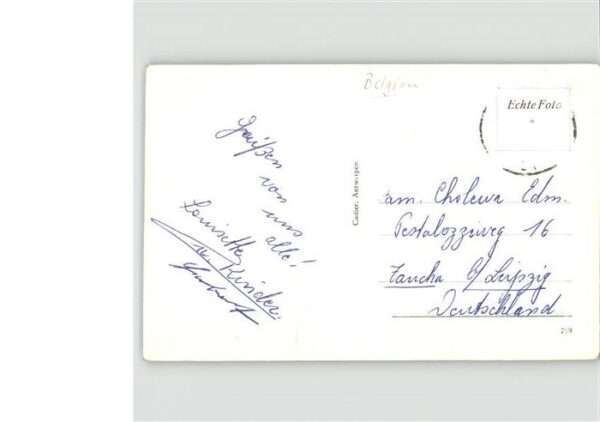 Belgien
Echte Foto
Grüßen
von
uns
alle!
Louisette
u. Kinder.
Cadier, Antwerpen
Fam. Cholewa Edm.
Pestalozziweg 16
Taucha b/Leipzig
Deutschland